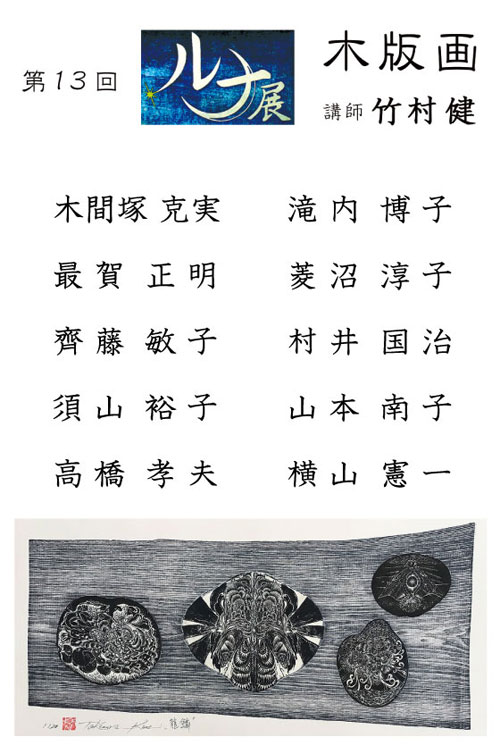 第13回
ルナ展
木版画
講師 竹村健
木間塚 克実 滝内 博子
最賀 正明 菱沼 淳子
齊藤 敏子 村井 国治
須山 裕子 山本 南子
高橋 孝夫 横山 憲一